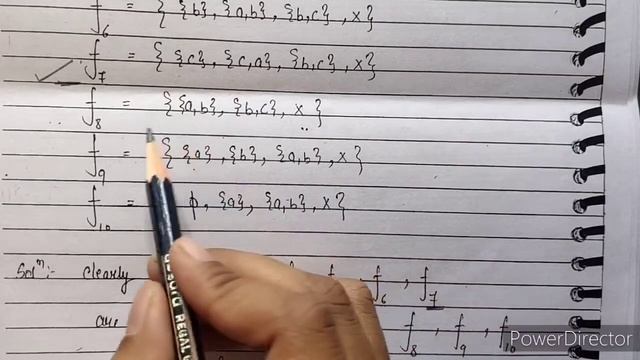 f₆ = { {b}, {a,b}, {b,c}, X }
f₇ = { {c}, {c,a}, {b,c}, X }
f₈ = { {a,b}, {b,c}, X }
f₉ = { {a}, {b}, {a,b}, X }
f₁₀ = ϕ, {a}, {a,b}, X }
Solⁿ:- Clearly f₆, f₇
are f₈, f₉, f₁₀
PowerDirector